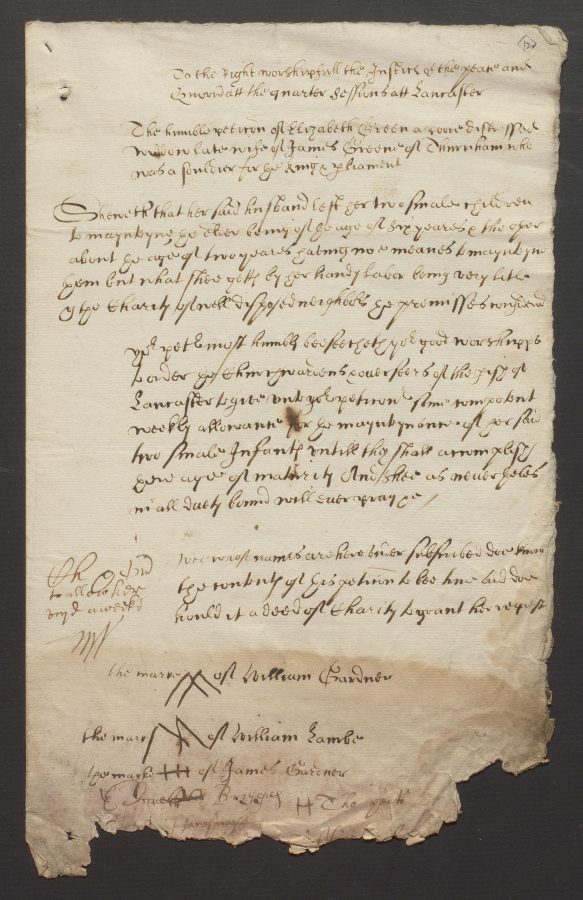 120
To the Right worshipfull the Justices of the peace and
Quorum att the quarter Sessions att Lancaster
The humble peticon of Elizabeth Green a poore distressed
widdow late wife of James Greene of Thurnham who
was a souldier for the king & pliament
Sheweth that her said husband left her two smale Children
to maynteyne the Elder being of the age of Six yeares & the other
about the age of two yeares having noe meanes to maynteyne
them but what shee getts by her handy labor being very litle
& the Charity of well disposed neighbors the premisses considered
yor petr most humbly beseecheth yor good worshipps
to order the Churchwardens & overseers of the pish of
Lancaster to give unto yor peticonr some competent
weekly allowance for the mayntenance of her said
two smale Infants untill they shall accomplish
there age of maturity And shee as nevertheles
in all duety bound will ever pray &c
wee whose names are hereunder subscribed doe know
the contents of this peticon to bee true and doe
hould it a deed of Charity to grant her request
to allow her
a weeke
the marke of William Gardner
the marke of William Lambe
the marke of James Gardner
The